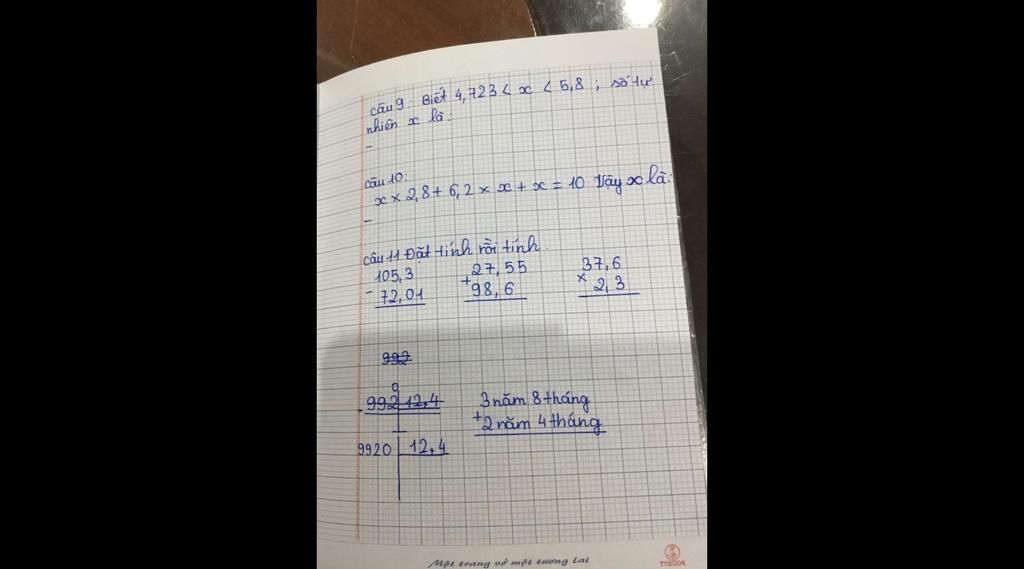 câu 9: Biết 4,723 < x < 5,8 ; số tự
nhiên x là:
-
câu 10:
x × 2,8 + 6,2 × x + x = 10 Vậy x là:
-
câu 11 Đặt tính rồi tính.
105,3 27,55 37,6
- + ×
72,01 98,6 2,3
992
0
992 12,4 3 năm 8 tháng
+ 2 năm 4 tháng
9920 12,4
Một trang vở một tương lai
TTBOOK